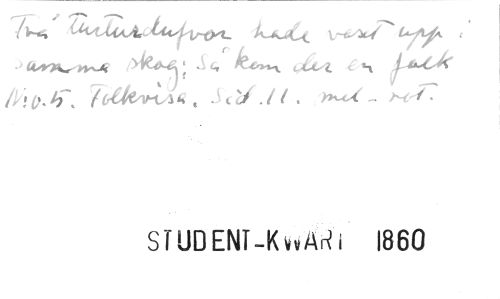 Två turturdufvor hade växt upp i
samma skog; Så kom der en falk
N:o.5. Folkvisa. Sid.11. mel-not.
STUDENT-KWART 1860